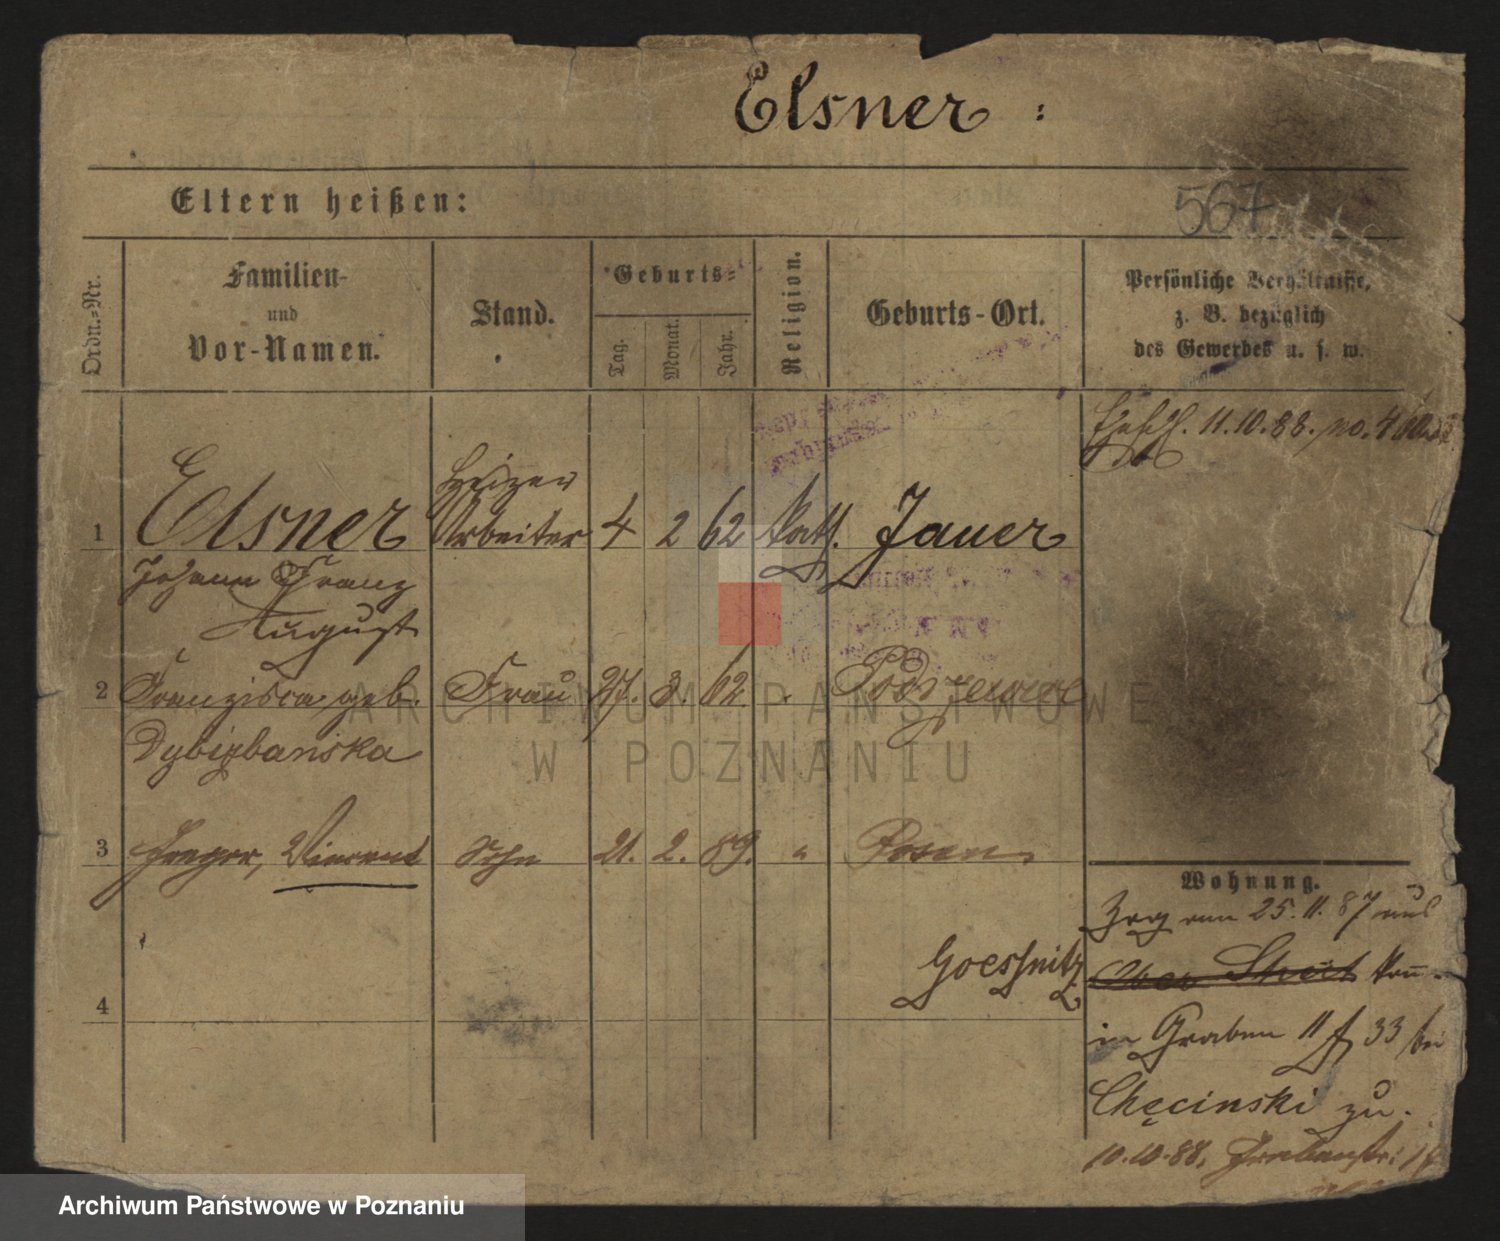 Elsner :
Eltern heißen:
567
Ordn.-Nr.
Familien-
und
Vor-Namen.
Stand.
Geburts-
Tag.
Monat.
Jahr.
Religion.
Geburts-Ort.
Persönliche Verhältnisse,
z. B. bezüglich
des Gewerbes u. s. w.
11.10.88. no.
Heizer
1 Elsner Arbeiter 4 2 62 Kath. Jauer
Johann Franz
August
2 Franzisca geb. Frau 27. 3. 62. "
Dybizbanska
3 Vincent Sohn 21. 2. 89. " Posen
Wohnung.
Zug am 25. 11. 87 aus
Goessnitz
4
in Graben 11 f 33 bei
Chęcinski zu.
10.10.88. Grabenstr.
ARCHIWUM PAŃSTWOWE
W POZNANIU
Archiwum Państwowe w Poznaniu